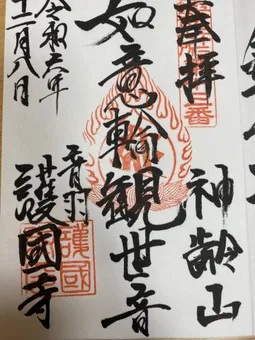 奉拝
神齢山
如意輪観世音
音羽
護國寺
令和六年
十二月八日